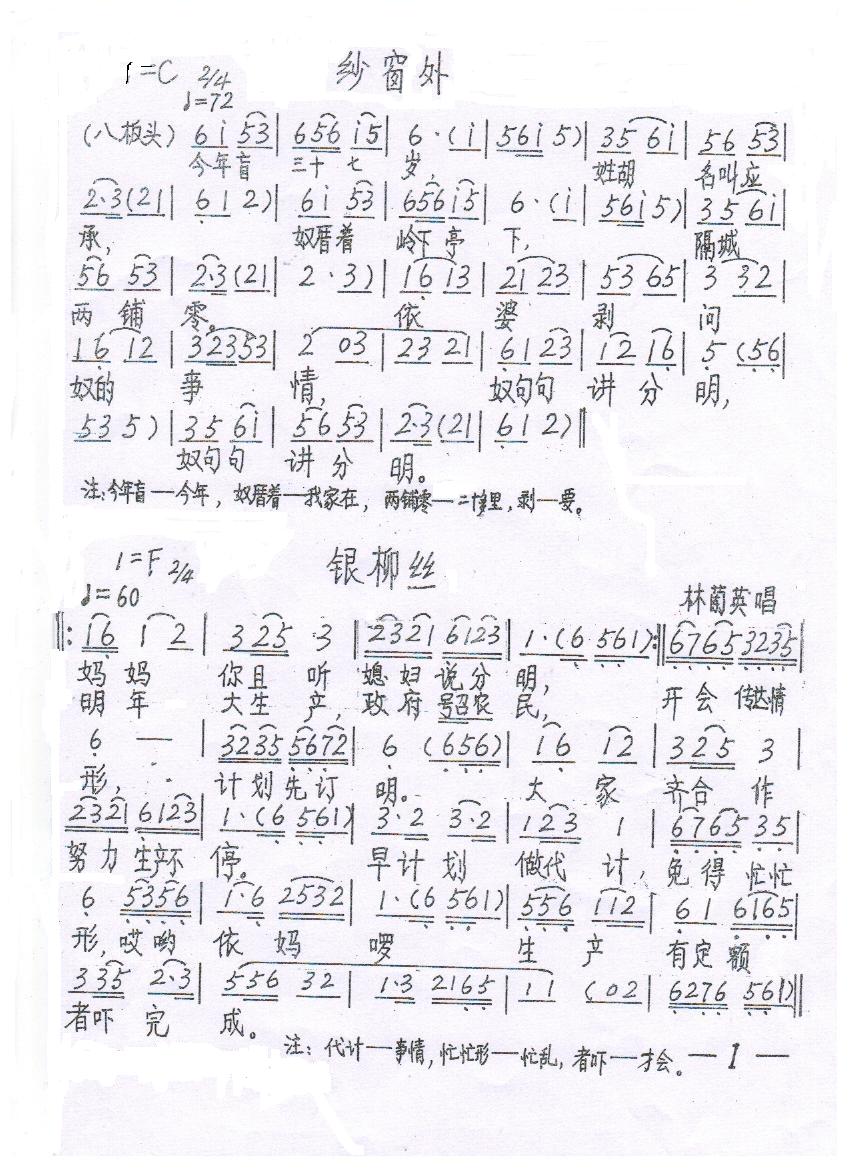 纱窗外
1=C 2/4
♩=72
(八板头) 6 i 53 | 656 i5 | 6·(i | 56i 5) | 35 6i | 56 53 |
今年盲 三十七 岁, 姓胡 名叫应
2·3(21 | 6 1 2) | 6i 53 | 656i5 | 6·(i | 56i 5) | 35 6i |
承, 奴厝着 岭下亭 下, 隔城
56 53 | 2·3(21 | 2·3) | 16 13 | 21 23 | 53 65 | 3 32 |
两铺 零。 依 婆 剥 问
16 12 | 32353 | 2 03 | 23 21 | 61 23 | 12 16 | 5 (56 |
奴的 事 情, 奴句句 讲分 明,
53 5) | 35 6i | 56 53 | 2·3(21 | 61 2) ‖
奴句句 讲分 明。
注:今年盲一今年,奴厝着一我家在,两铺零一二十多里,剥一要。
银柳丝
1=F 2/4
♩=60
林蔔英唱
‖: 16 1 2 | 3 25 3 ‖ 2321 6123 | 1·(6 561) :‖ 6765 3235 |
妈妈 你且听 媳妇说分 明, 开会传达情
明年 大生产, 政府号召农 民,
6 — | 3235 5672 | 6 (656) | 16 12 | 325 3 |
形, 计划先订 明。 大家 齐合作
2321 6123 | 1·(6 561) | 3·2 3·2 | 123 1 | 6765 35 |
努力生产不 停。 早计划 做代计, 免得忙忙
6 5356 | 1·6 2532 | 1·(6 561) | 556 112 | 61 6165 |
形,哎哟 依妈 啰 生产 有定额
335 2·3 | 556 32 | 1·3 2165 | 11 (02 | 6276 561) ‖
者吓完 成。
注:代计一事情,忙忙形一忙乱,者吓一才会。 — 1 —